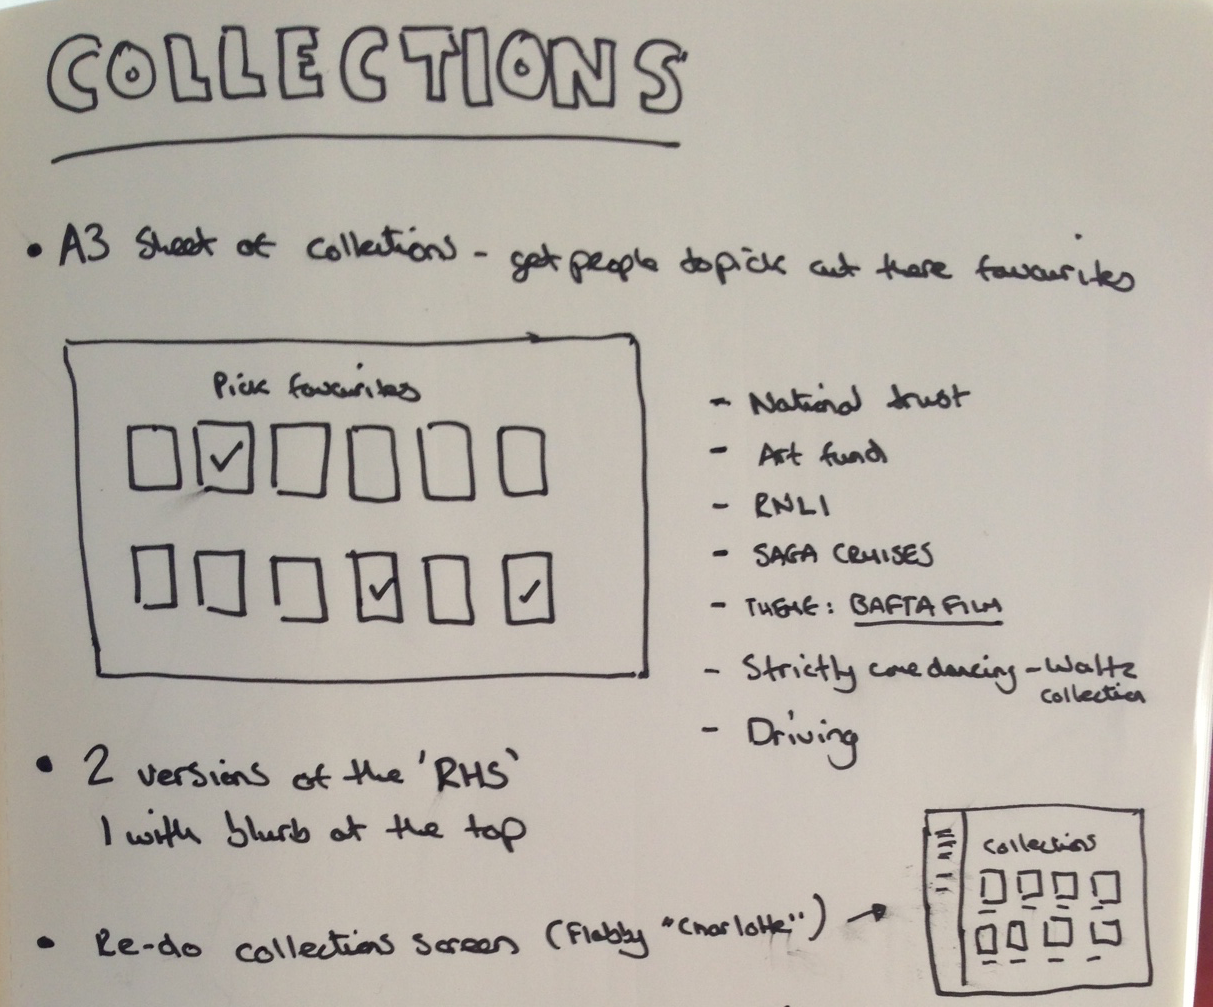 COLLECTIONS
• A3 Sheet of collections - get people to pick out there favourites
Pick favourites
- National trust
- Art fund
- RNLI
- SAGA CRUISES
- THEME: BAFTA FILM
- Strictly come dancing - Waltz
collection
- Driving
• 2 versions of the 'RHS'
1 with blurb at the top
• Re-do collections screen (Flabby "Charlotte")
Collections